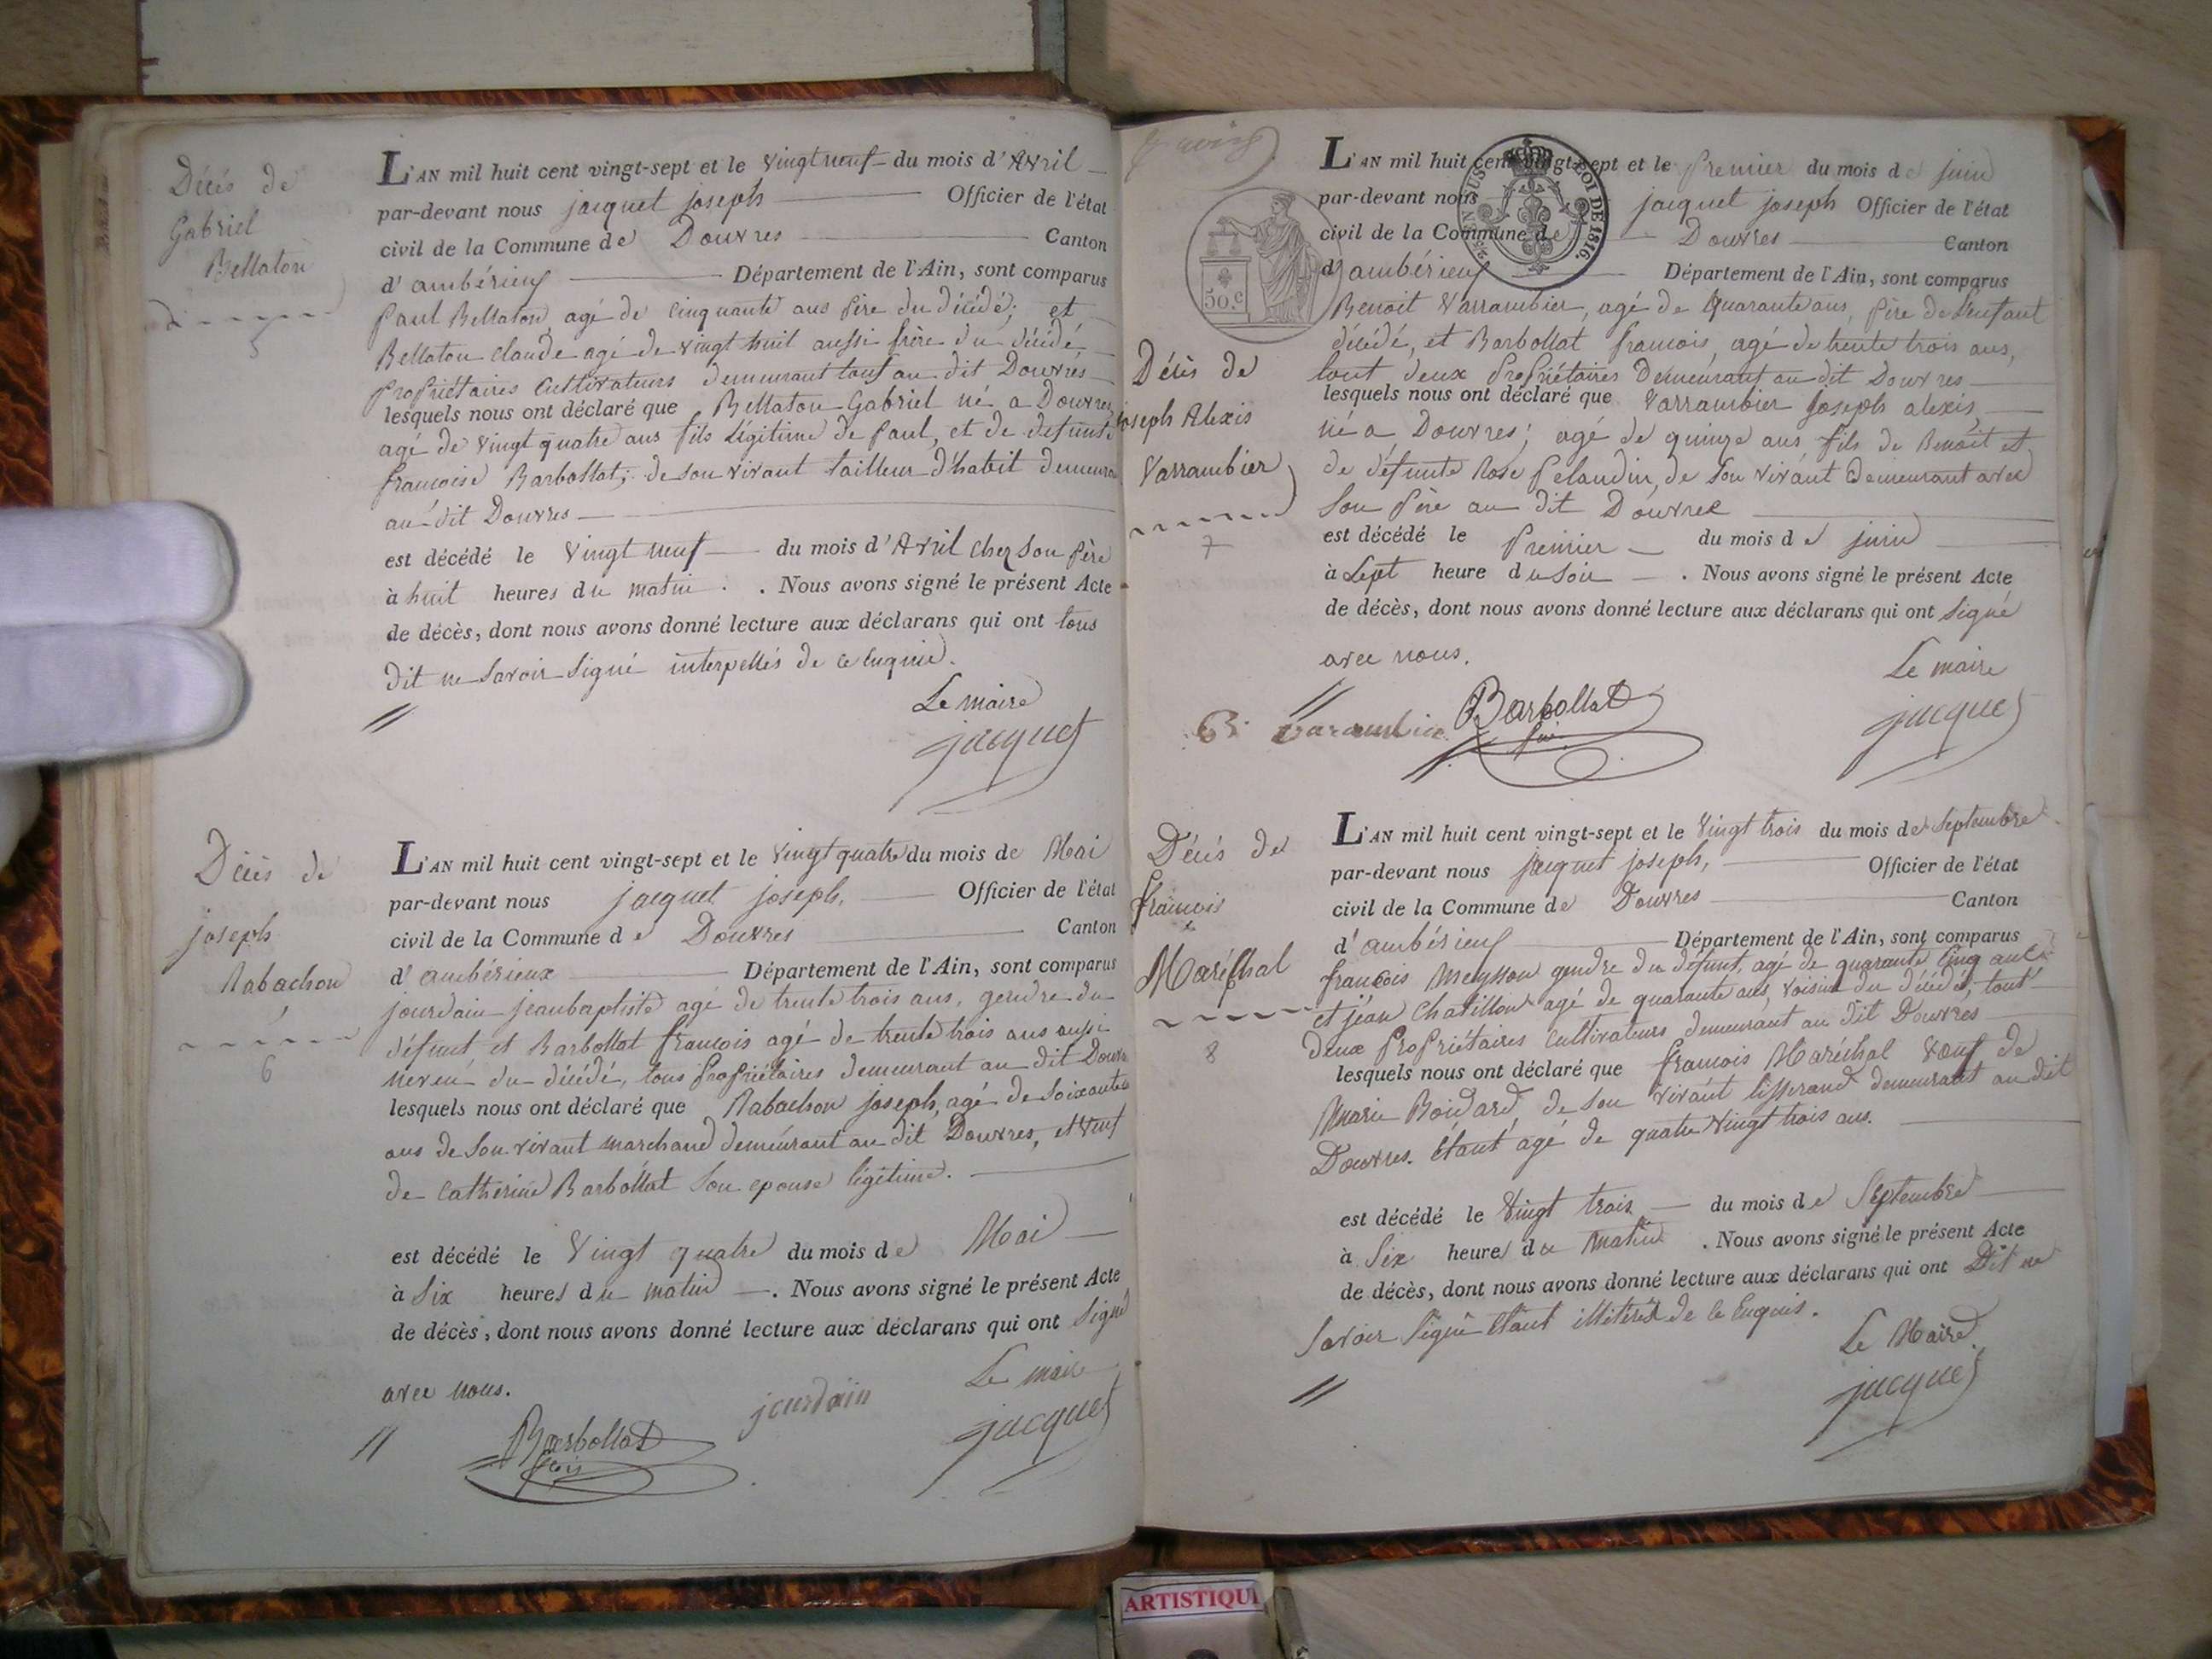 Décès de
Gabriel
Bellaton
5
L'AN mil huit cent vingt-sept et le vingt neuf du mois d'Avril
par-devant nous jacquet joseph Officier de l'état
civil de la Commune de Douvres Canton
d'ambérieux Département de l'Ain, sont comparus
Paul Bellaton, agé de cinquante ans père du décédé; et
Bellaton claude agé de vingt huit aussi frère du décédé
propriétaires cultivateurs demeurant tous au dit Douvres
lesquels nous ont déclaré que Bellaton Gabriel né a Douvres
agé de vingt quatre ans fils légitime de Paul, et de defunte
francoise Barbollat; de son vivant tailleur d'habit demeurant
au dit Douvres
est décédé le vingt neuf du mois d'Avril chez son père
à huit heures du matin. Nous avons signé le présent Acte
de décès, dont nous avons donné lecture aux déclarans qui ont tous
dit ne savoir signé interpellés de ce enquis.
Le maire
jacquet
Décès de
joseph
Rabachon
6
L'AN mil huit cent vingt-sept et le vingt quatre du mois de Mai
par-devant nous jacquet joseph, Officier de l'état
civil de la Commune de Douvres Canton
d'ambérieux Département de l'Ain, sont comparus
jourdain jeanbaptiste agé de trente trois ans, gendre du
défunt, et Barbollat francois agé de trente trois ans aussi
neveu du décédé, tous propriétaires demeurant au dit Douvres
lesquels nous ont déclaré que Rabachon joseph, agé de soixante
ans de son vivant marchand demeurant au dit Douvres, et veuf
de catherine Barbollat son epouse légitime.
est décédé le vingt quatre du mois de Mai
à six heures du matin. Nous avons signé le présent Acte
de décès, dont nous avons donné lecture aux déclarans qui ont signé
avec nous.
Le maire
Barbollat
fcois
jourdain
jacquet
50c
LOI DE 1816.
Décès de
joseph Alexis
Varrambier
7
L'AN mil huit cent vingt-sept et le Premier du mois de juin
par-devant nous jacquet joseph Officier de l'état
civil de la Commune de Douvres Canton
d'ambérieux Département de l'Ain, sont comparus
Benoit Varrambier, agé de quarante ans, père de l'enfant
décédé, et Barbollat francois, agé de trente trois ans,
tout deux propriétaires demeurant au dit Douvres
lesquels nous ont déclaré que Varrambier joseph alexis,
né a Douvres; agé de quinze ans fils de Benoit et
de défunte Rose Pelaudin, de son vivant demeurant avec
son père au dit Douvres
est décédé le Premier du mois de juin
à sept heure du soir. Nous avons signé le présent Acte
de décès, dont nous avons donné lecture aux déclarans qui ont signé
avec nous.
Le maire
B. varambier
Barbollat
jacquet
Décès de
francois
Maréchal
8
L'AN mil huit cent vingt-sept et le vingt trois du mois de septembre
par-devant nous jacquet joseph, Officier de l'état
civil de la Commune de Douvres Canton
d'ambérieux Département de l'Ain, sont comparus
francois Meynon gendre du défunt, agé de quarante cinq ans
et jean Chatillon agé de quarante ans, voisin du décédé, tout
deux propriétaires cultivateurs demeurant au dit Douvres
lesquels nous ont déclaré que francois Maréchal veuf de
Marie Boidard, de son vivant tisserand demeurant au dit
Douvres. Etant agé de quatre vingt trois ans.
est décédé le vingt trois du mois de Septembre
à six heures du matin. Nous avons signé le présent Acte
de décès, dont nous avons donné lecture aux déclarans qui ont dit ne
savoir signé étant de ce enquis.
Le Maire
jacquet
ARTISTIQU